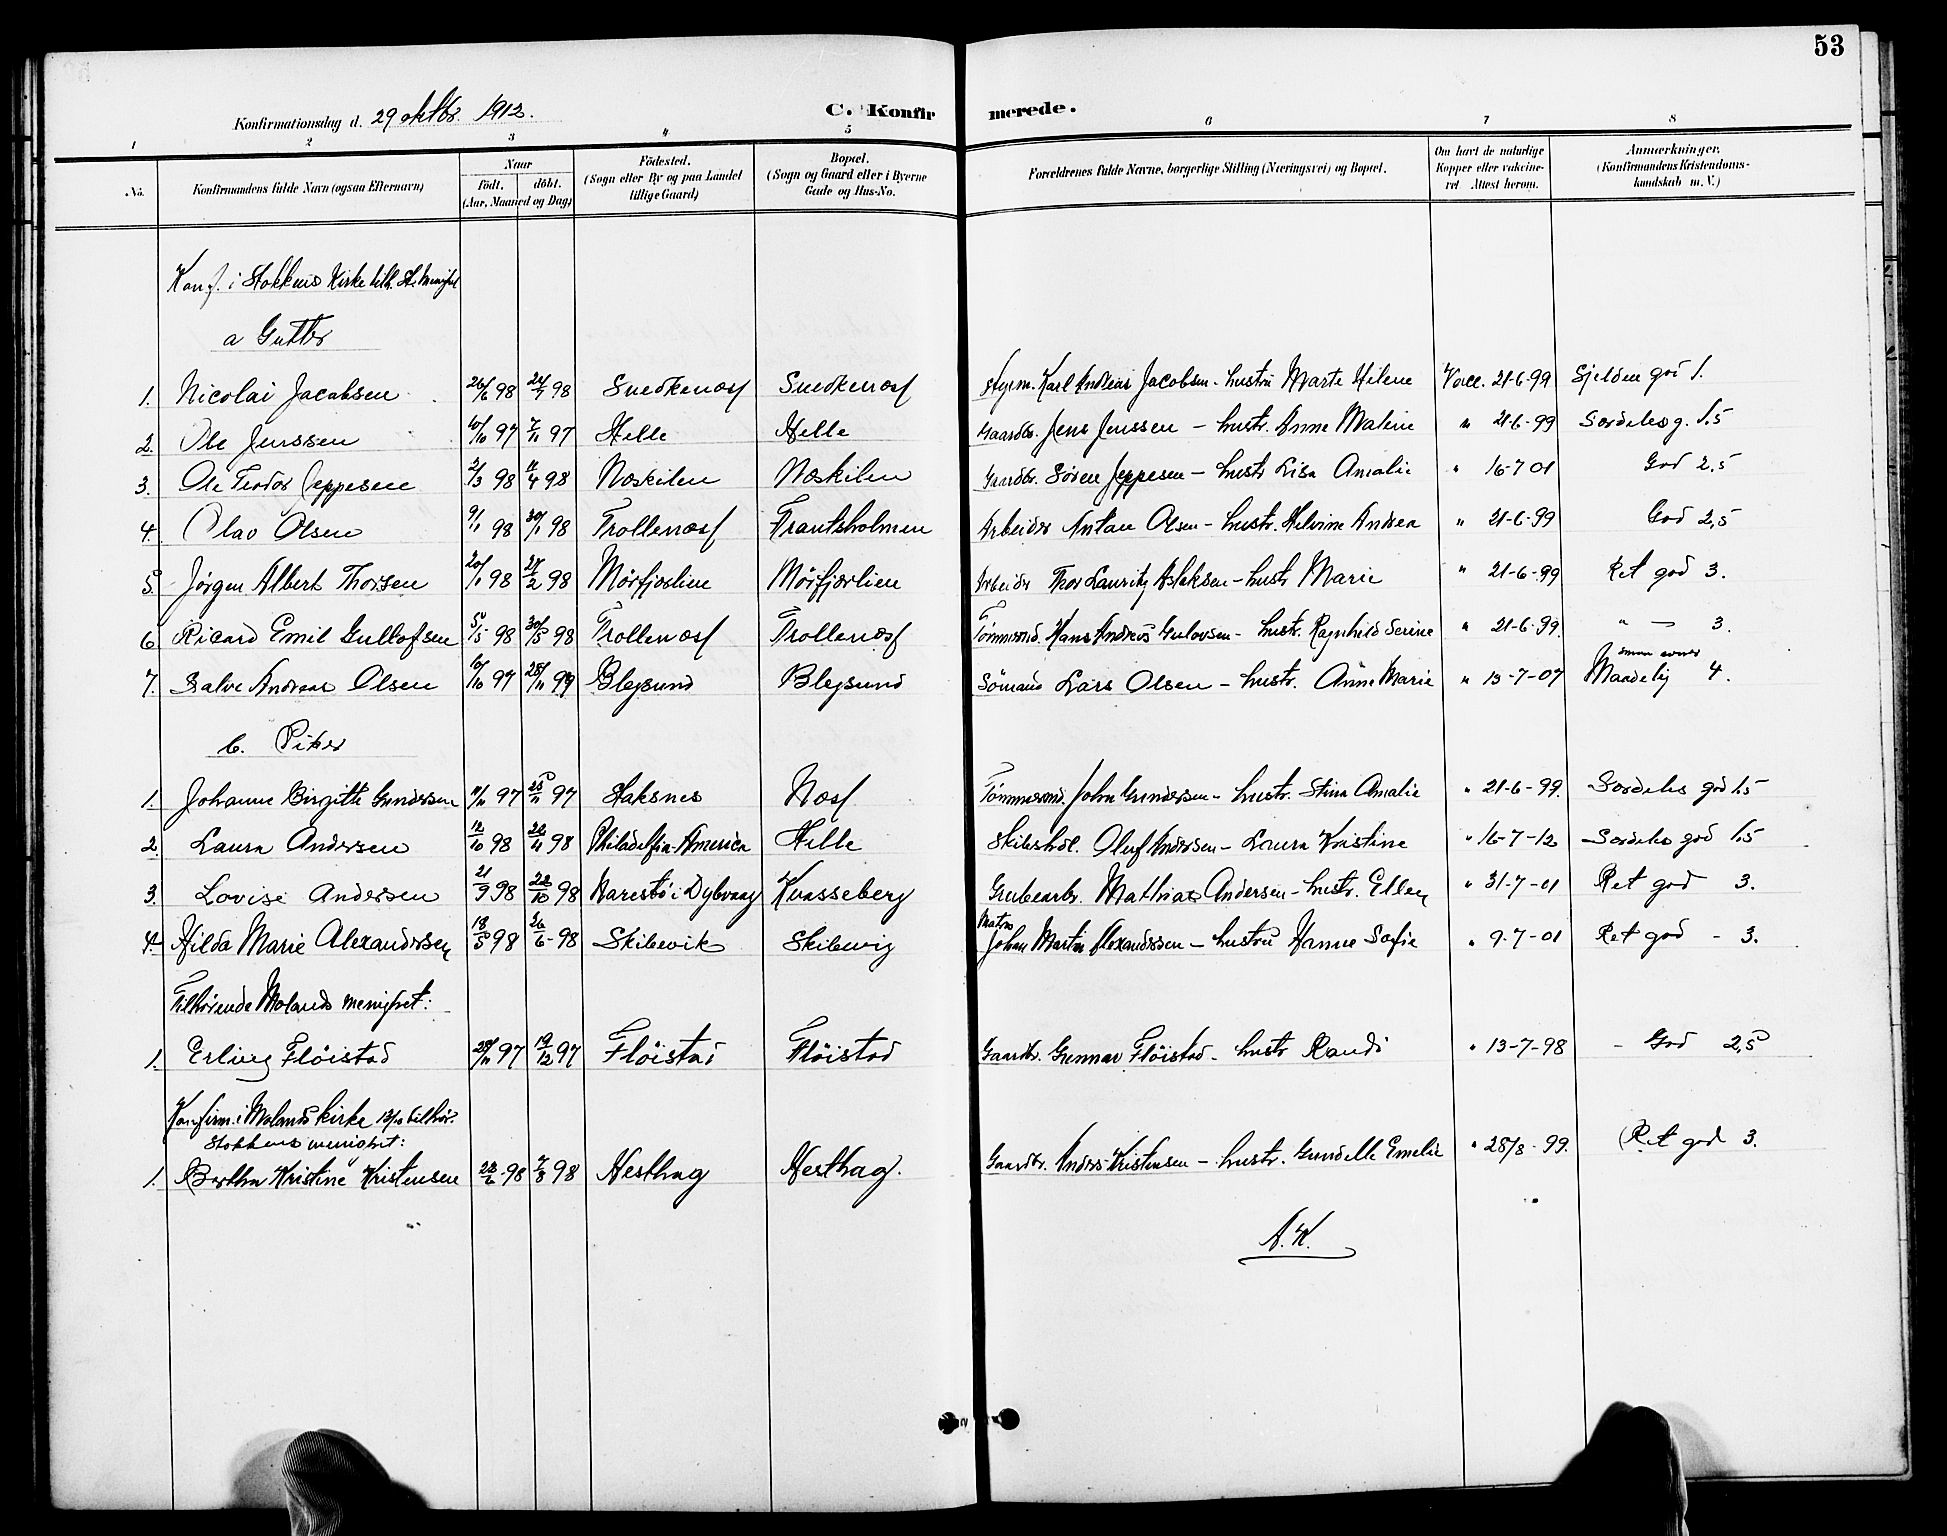 53
Konfirmationsdag d. 29 oktbr. 1912.
C. Konfirmerede.
1 2 3 4 5 6 7 8
No. Konfirmandens fulde Navn (ogsaa Efternavn) Naar födt. döbt. (Aar, Maaned og Dag) Födested. (Sogn eller By og paa Landet tillige Gaard) Bopæl. (Sogn og Gaard eller i Byerne Gade og Hus-No. Forældrenes fulde Navne, borgerlige Stilling (Næringsvei) og Bopæl. Om havt de naturlige Kopper eller vakcineret Attest herom. Anmærkninger. (Konfirmandens Kristendomskundskab m. V.)
Konf. i Stokkens Kirke tilh. St. Menighet
a Gutter
1. Nicolai Jacobsen 26/6 98 24/7 98 Snedkenæsf Snedkenæsf Styrm. Karl Andreas Jacobsen - hustru Marte Helene Vacc. 21-6-99 Sjelden god 1.
2. Ole Jenssen 10/10 97 7/11 97 Helle Helle Gaardbr. Jens Jenssen - hustr. Anne Malene " 21-6-99 Særdeles g. 1.5
3. Ole Teodor Jeppesen 2/3 98 11/4 98 Næskilen Næskilen Gaardbr. Sören Jeppesen - hustr Lisa Amalie " 16-7 01 God 2.5
4. Olav Olsen 9/1 98 30/1 98 Trollenæsf Frantsholmen Arbeider Antan Olsen - hustr. Helvine Andrea " 21-6-99 God 2,5
5. Jörgen Albert Thorsen 20/1 98 27/2 98 Mörfjærlien Mörfjærlien Arbeider Thor Lauritz Aslaksen - hustr Marie " 21-6-99 Ret god 3.
6. Ricard Emil Gullofsen 5/5 98 30/5 98 Trollenæsf Trollenæsf Tömmermd. Hans Andreas Gulovsen - hustr. Ragnhild Serine " 21-6-99. " — 3.
7. Salve Andreas Olsen 10/10 97 28/11 97 Blegsund Blegsund Sömand Lars Olsen - hustr. Anne Marie " 13-7-07 smaa evner Maadelig 4.
b. Piker
1. Johanne Birgitte Gundersen 11/11 97 25/11 97 Staksnes Næsf Tömmermd. John Gundersen - hustr. Stina Amalie " 21-6-99. Særdeles god 1.5
2. Laura Andersen 12/10 98 22/11 98 Philadelfia-America Helle Skibshdl. Oluf Andersen - Laura Kristine " 16-7-12 Særdeles god 1.5
3. Lovise Andersen 21/9 98 22/10 98 Narestö i Dybvaag Kvasseberg Grubearb. Mathias Andersen - hustr. Ellen " 31-7-01 Ret god 3.
4. Hilda Marie Alexandersen 18/5 98 26/6 - 98 Skibevik Skibevig Matros Johan Martin Alexandersen - hustru Hanne Sofie " 9-7-01 Ret god - 3.
Tilhörende Molands menighet:
1. Erling Flöistad 28/11 97 19/12 97 Flöistad Flöistad Gaardbr. Gunnar Flöistad - hustr Randi " 13-7-98 - God 2,5
Konfirm. i Molands kirke 13/10 tilhör. Stokkens menighet:
1. Bertha Kristine Kristensen 22/6 - 98 7/8 98 Hesthag Hesthag. Gaardbr. Anders Kristensen - hustr. Gunelle Emelie " 28/8 - 99. Ret god 3.
A. K.